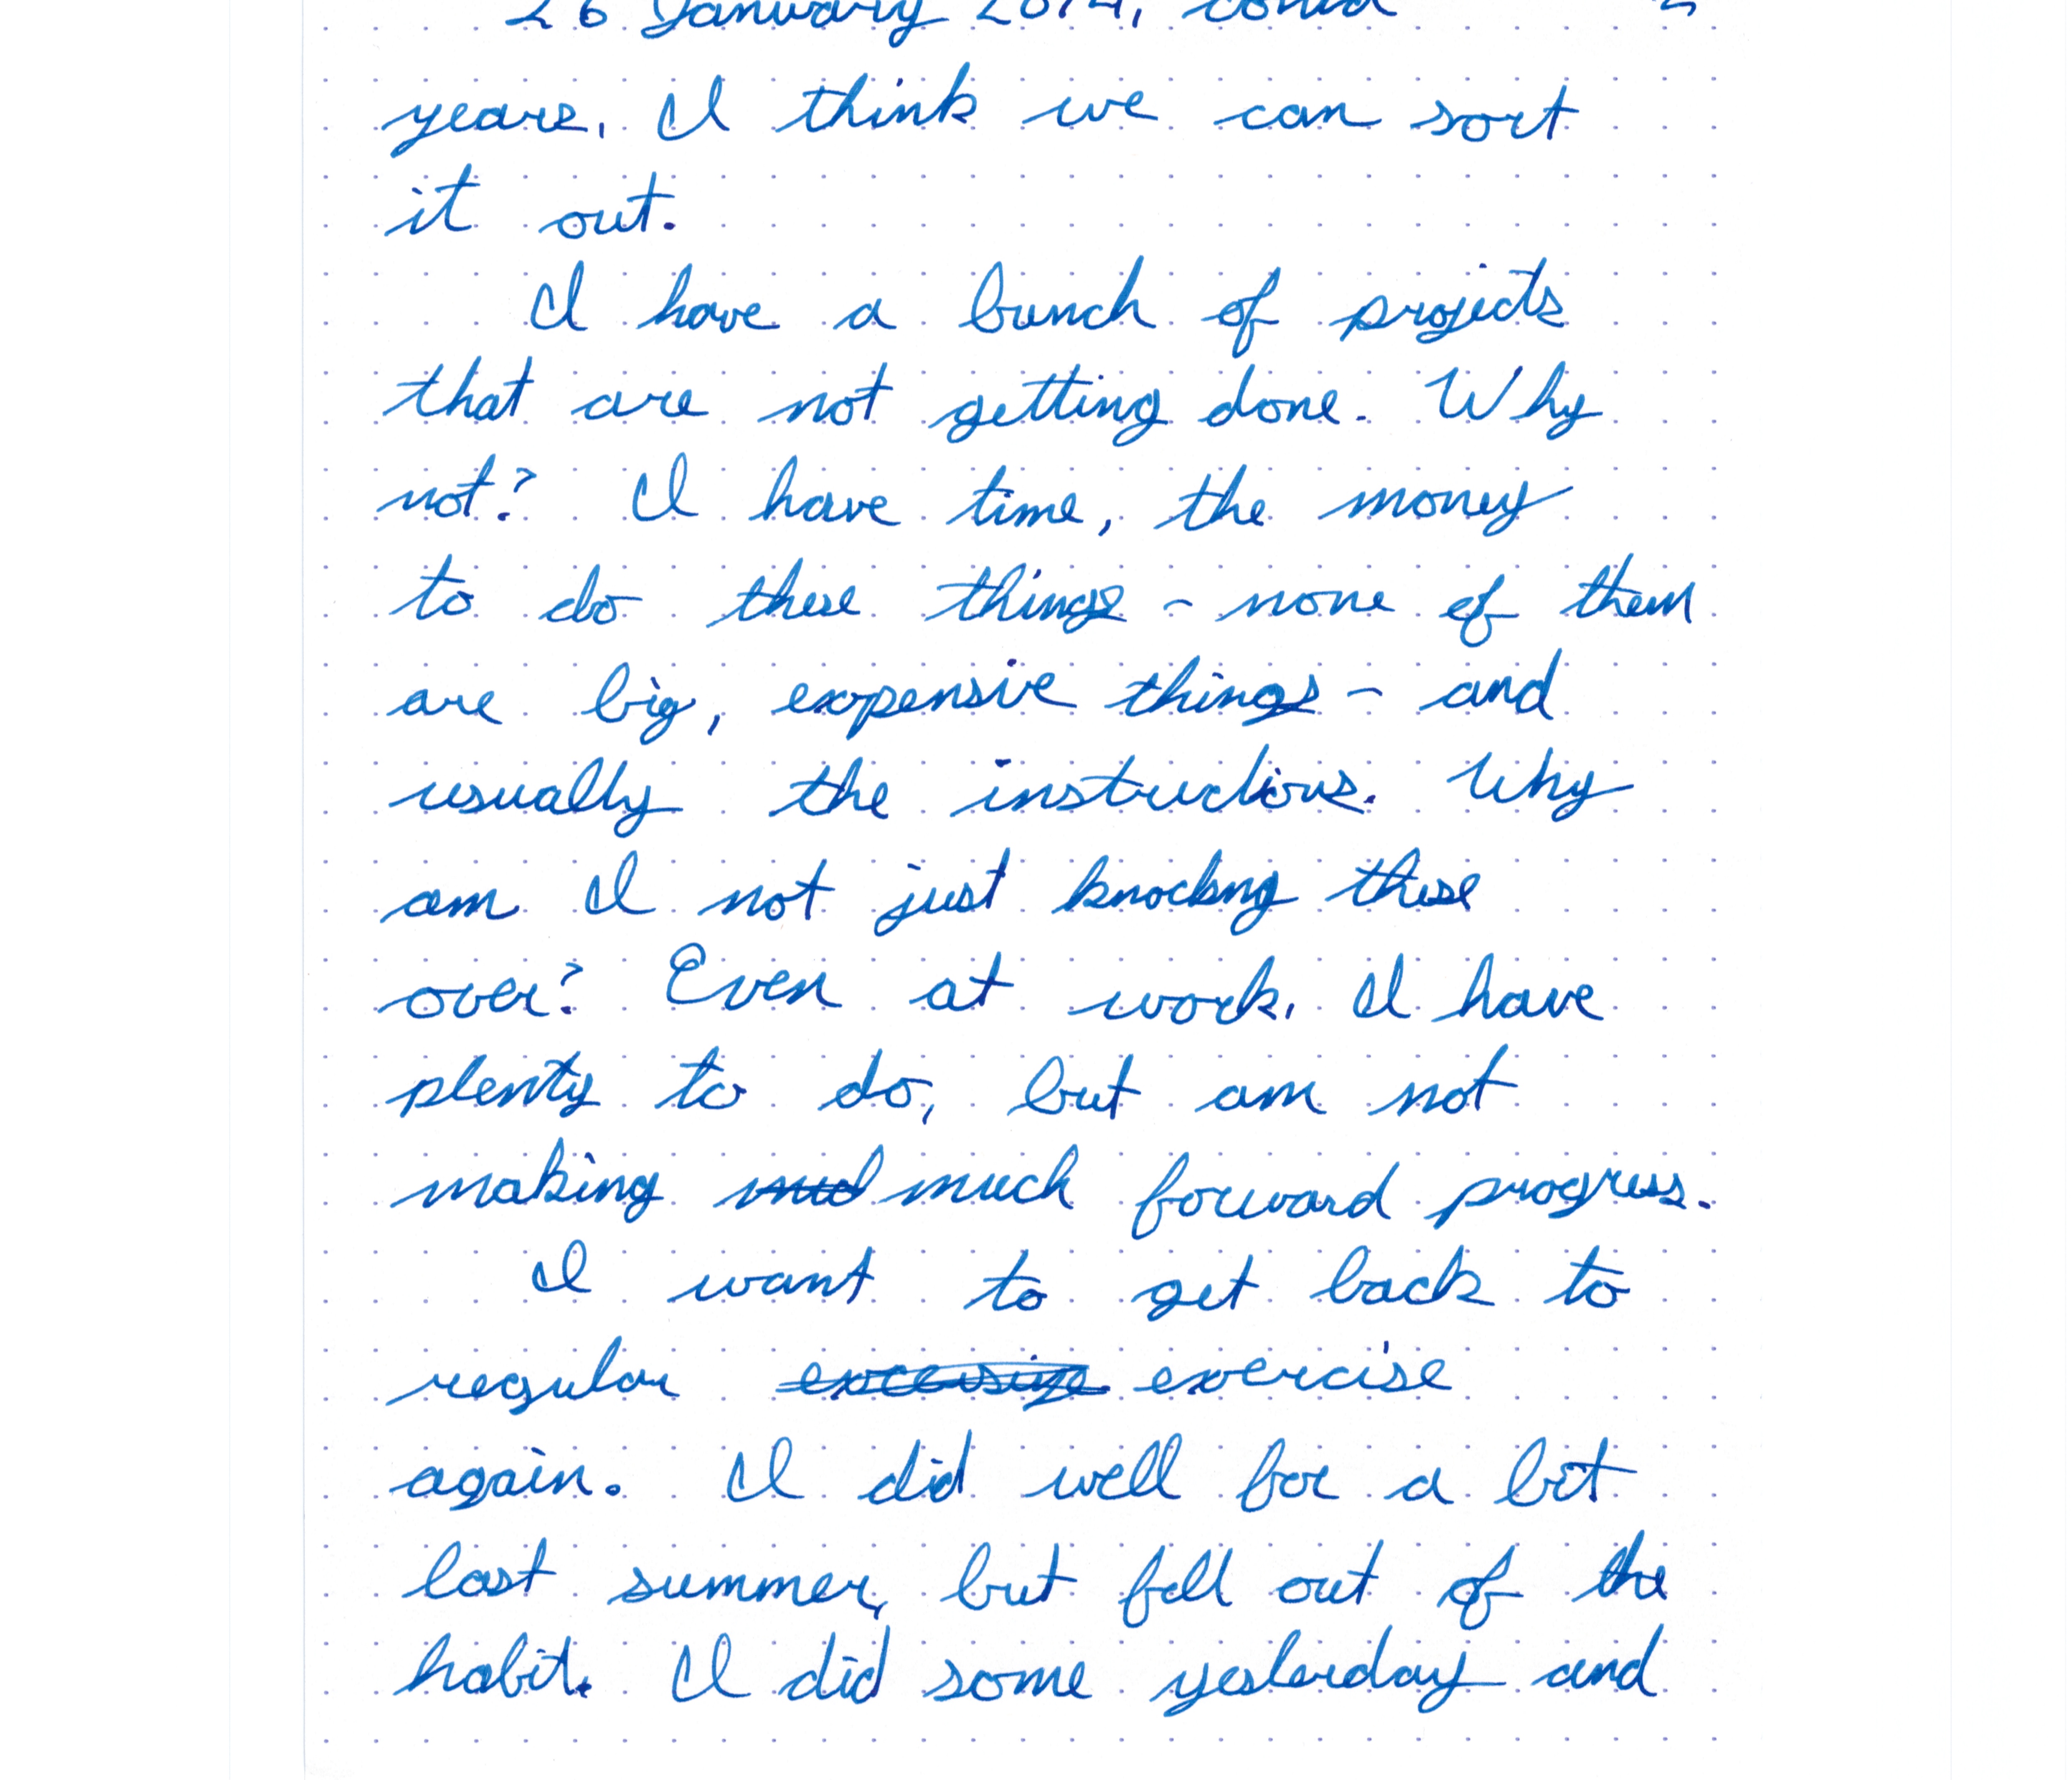 26 January 2014, cont'd 2
years. I think we can sort
it out.
I have a bunch of projects
that are not getting done. Why
not? I have time, the money
to do these things - none of them
are big, expensive things - and
usually the instructions. Why
am I not just knocking these
over? Even at work. I have
plenty to do, but am not
making mud much forward progress.
I want to get back to
regular excersize exercise
again. I did well for a bit
last summer, but fell out of the
habit. I did some yesterday and